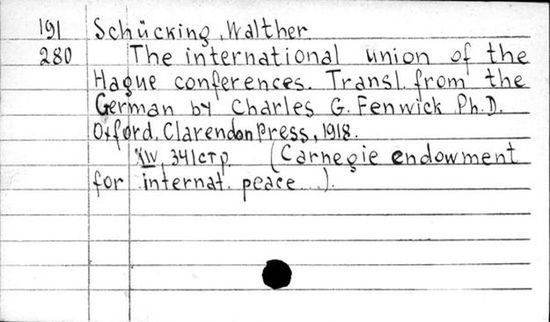 191 Schücking, Walther.
280 The international union of the
Hague conferences. Transl. from the
German by Charles G. Fenwick Ph.D.
Oxford, Clarendon Press, 1918.
XIV, 341 стр. (Carnegie endowment
for internat. peace...).